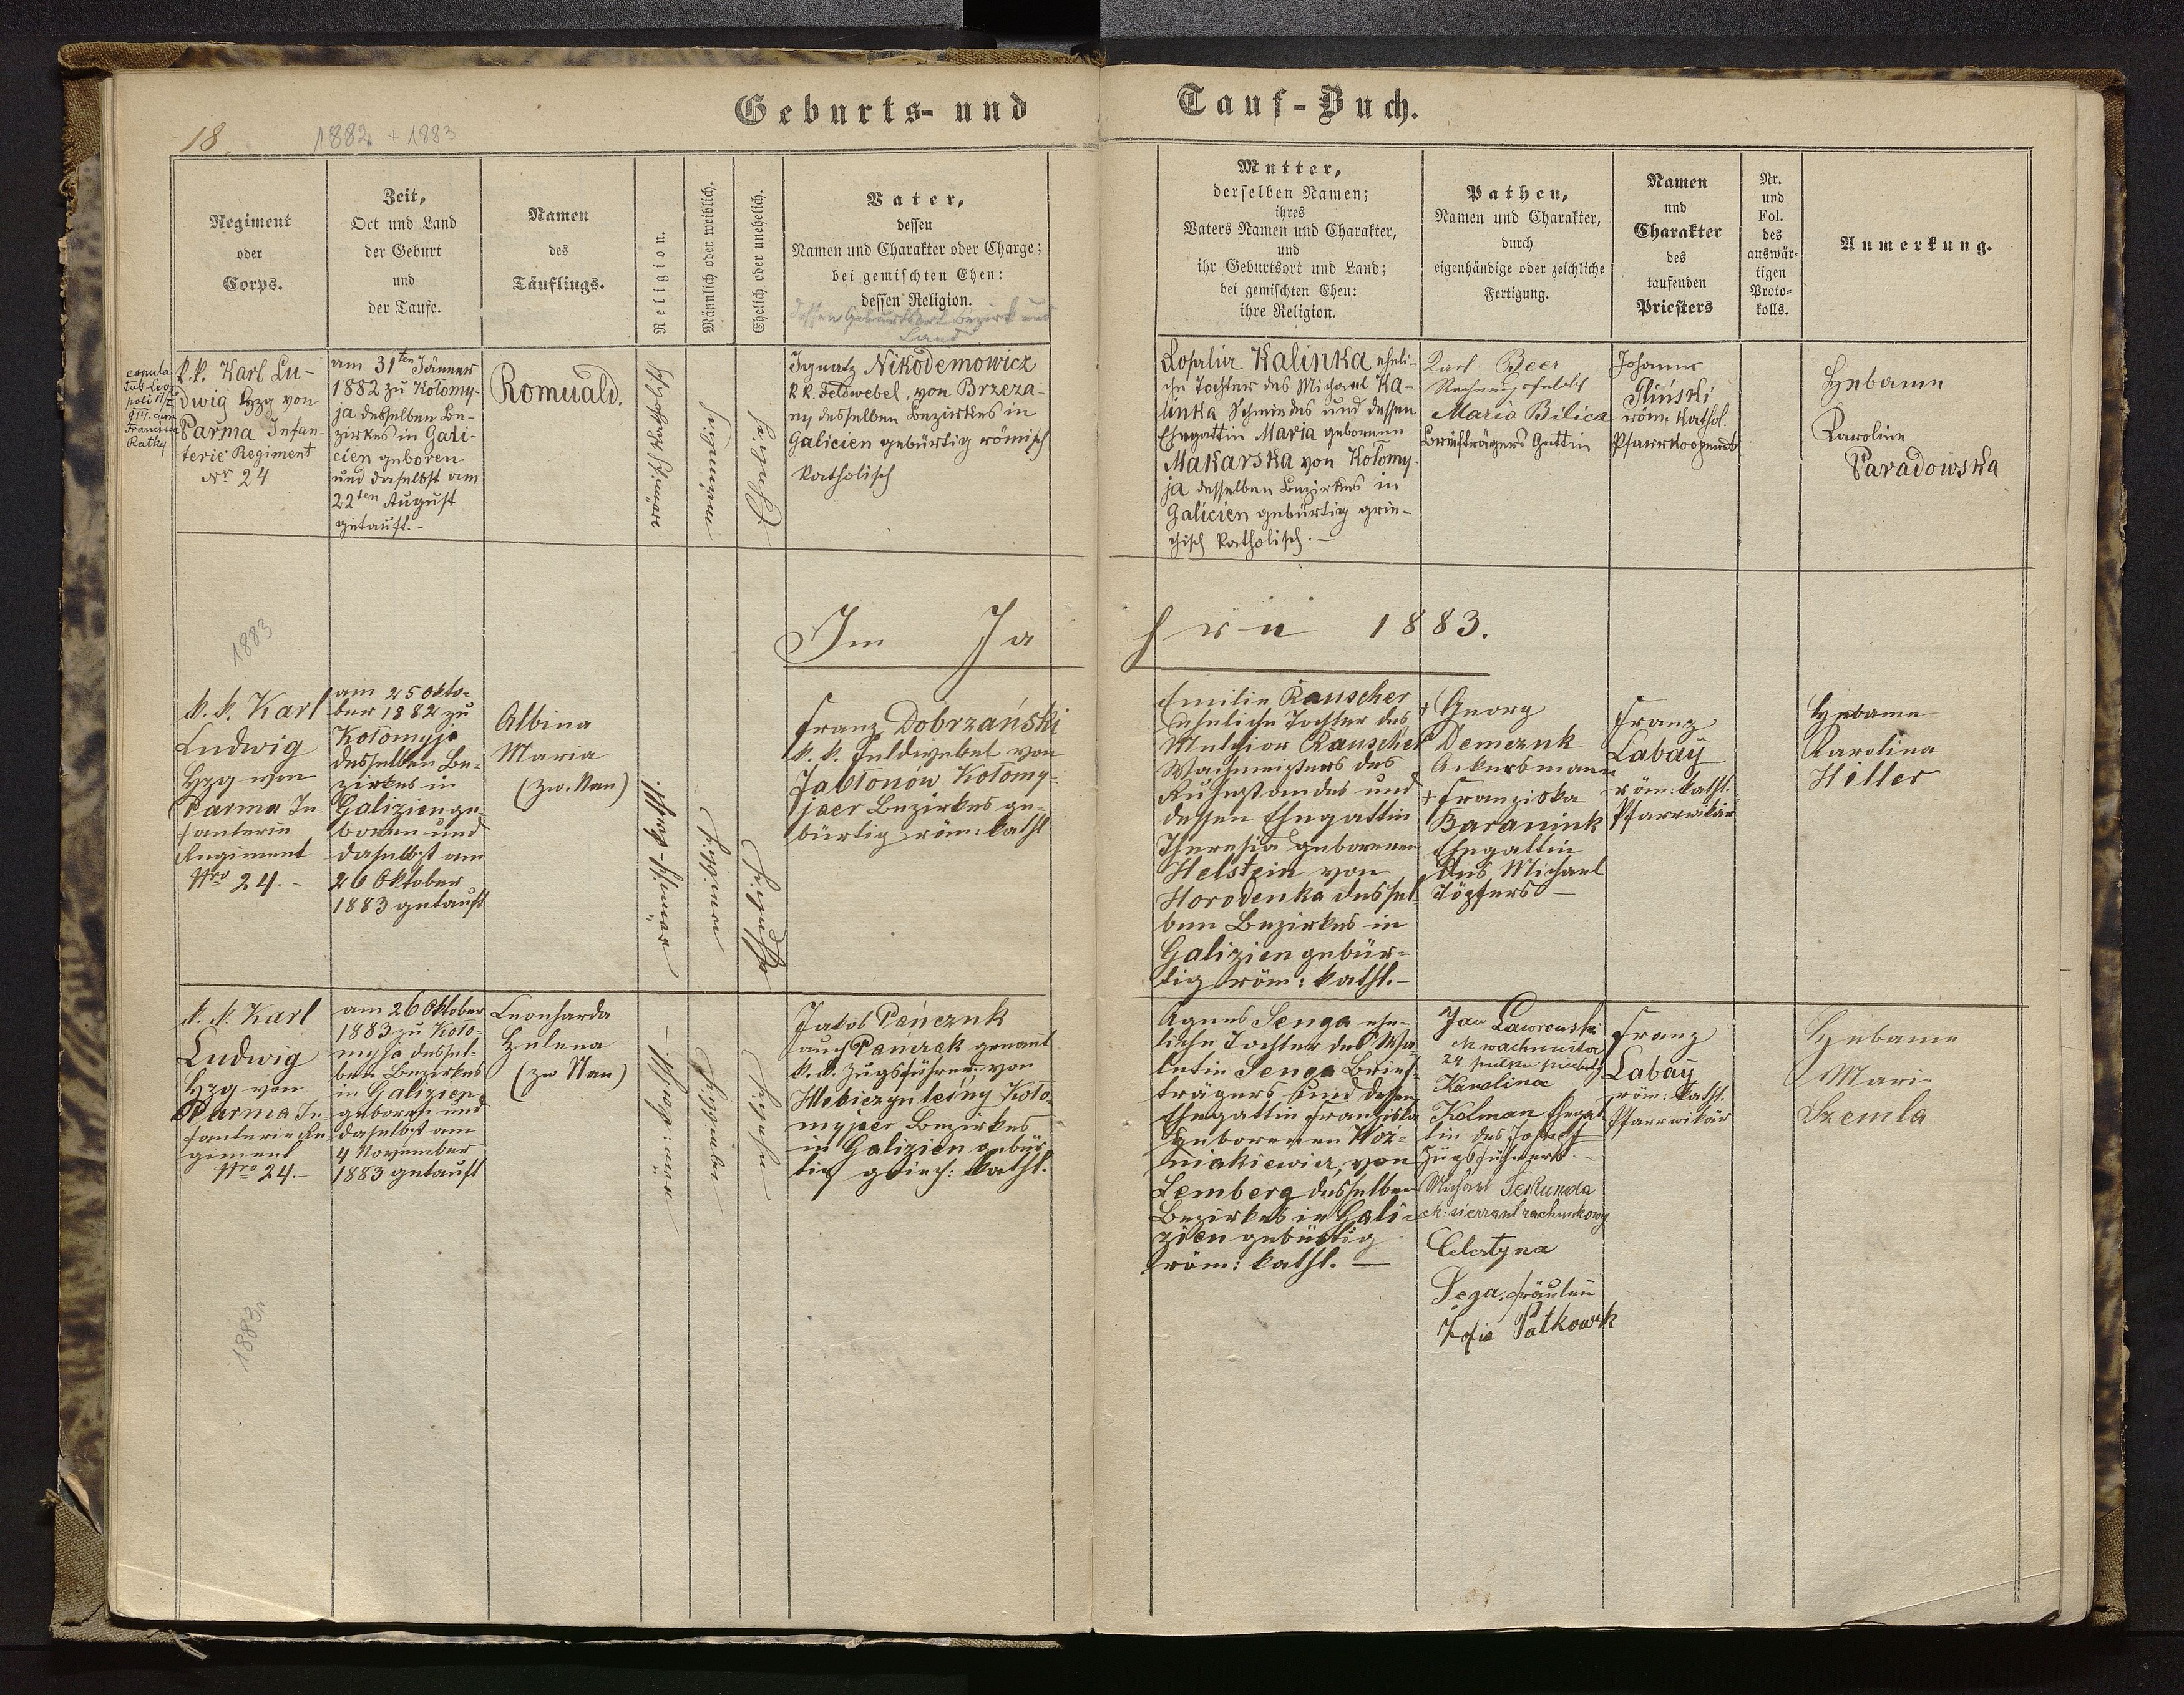 Geburts- und
Tauf-Buch.
18.
1882 + 1883
Regiment
oder
Corps.
Zeit,
Ort und Land
der Geburt
und
der Taufe.
Namen
des
Täuflings.
Religion.
Männlich oder weiblich.
Ehelich oder unehelich.
Vater,
dessen
Namen und Charakter oder Charge;
bei gemischten Ehen:
dessen Religion.
dessen Geburtsort Bezirk und
Land
Mutter,
derselben Namen;
ihres
Vaters Namen und Charakter,
und
ihr Geburtsort und Land;
bei gemischten Ehen:
ihre Religion.
Pathen,
Namen und Charakter,
durch
eigenhändige oder zeichliche
Fertigung.
Namen
und
Charakter
des
taufenden
Priesters
Nr.
und
Fol.
des
auswär-
tigen
Proto-
kolls.
Anmerkung.
copula
sub Leo-
poli
914 cum
Francisca
Ratky
k.k. Karl Lu-
dwig Hzg von
Parma Infan-
terie Regiment
Nr 24
am 31ten Jänner
1882 zu Kołomy-
ja desselben Be-
zirkes in Gali-
cien geboren
und daselbst am
22ten August
getauft.-
Romuald.
römisch katholisch
männlich
Ehelich
Ignatz Nikodemowicz
k k. Feldwebel, von Brzeza-
ny desselben Bezirkes in
Galicien gebürtig römisch
katholisch
Rosalia Kalinka eheli-
che Tochter des Michael Ka-
linka Schmiedes und dessen
Ehegattin Maria geborenen
Makarska von Kołomy-
ja desselben Bezirkes in
Galicien gebürtig grie-
chisch katholisch.-
Karl Beer
Rechnungsfeldw
Maria Bilica
Briefträgers Gattin
Johann
Pliński
röm. kathol.
Pfarrkooperator
Hebame
Karoline
Paradowska
1883
Im Ja
hre 1883.
k. k. Karl
Ludwig
Hzg von
Parma In-
fanterie
Regiment
Nro 24.-
am 25 Okto-
ber 1882 zu
Kołomyja
desselben Be-
zirkes in
Galizien ge-
boren und
daselbst am
26 Oktober
1883 getauft
Albina
Maria
(zw. Nam)
römisch-kathl.
weiblich
Ehelich
Franz Dobrzański
k. k. Feldwebel von
Jabłonow Kołomy-
jaer Bezirkes ge-
bürtig röm: kathl
Emilie Rauscher
eheliche Tochter des
Melchior Rauscher
Wachmeisters des
Ruhestandes und
dessen Ehegattin
Theresia geborenen
Helstein von
Horodenka dessel-
ben Bezirkes in
Galizien gebür-
tig röm: kathl.-
+ Georg
Demeznk
Ackersmann
+ Franziska
Baranink
Ehegattin
des Michael
Töpfers —
Franz
Labaÿ
röm: kathl.
Pfarrvikär
Hebame
Karolina
Hiller
k. k. Karl
Ludwig
Hzg von
Parma In-
fanterie Re-
giment
Nro 24.-
am 26 Oktober
1883 zu Koło-
myja dessel-
ben Bezirkes
in Galizien
geboren und
daselbst am
4 November
1883 getauft
Leonharda
Helena
(zw Nam)
röm: kathl. -
weiblich
Ehelich
Jakob Pańcznk
auch Pamrak genant
k.k. Zugsführer, von
Hlebiczyn leśny Koło-
myjaer Bezirkes
in Galizien gebür
tig griech: kathl.
Agnes Senga ehe-
liche Tochter des Wa-
lentin Senga Brief-
trägers und dessen
Ehegattin Franziska
geborenen Woź-
niakiewicz, von
Lemberg desselben
Bezirkes in Gali-
zien gebürtig
röm: kathl. —
Jan Laworowski
24 pułku piechoty
Karolina
Kolman Ehegat
tin des Josef
Zugsführers.-
Michael Sekunda
Celestyna
Sega, Fräulein
Zofia Patkowsk
Franz
Labaÿ
röm: kathl.
Pfarrvikär
Hebame
Marie
Szemla
1883.